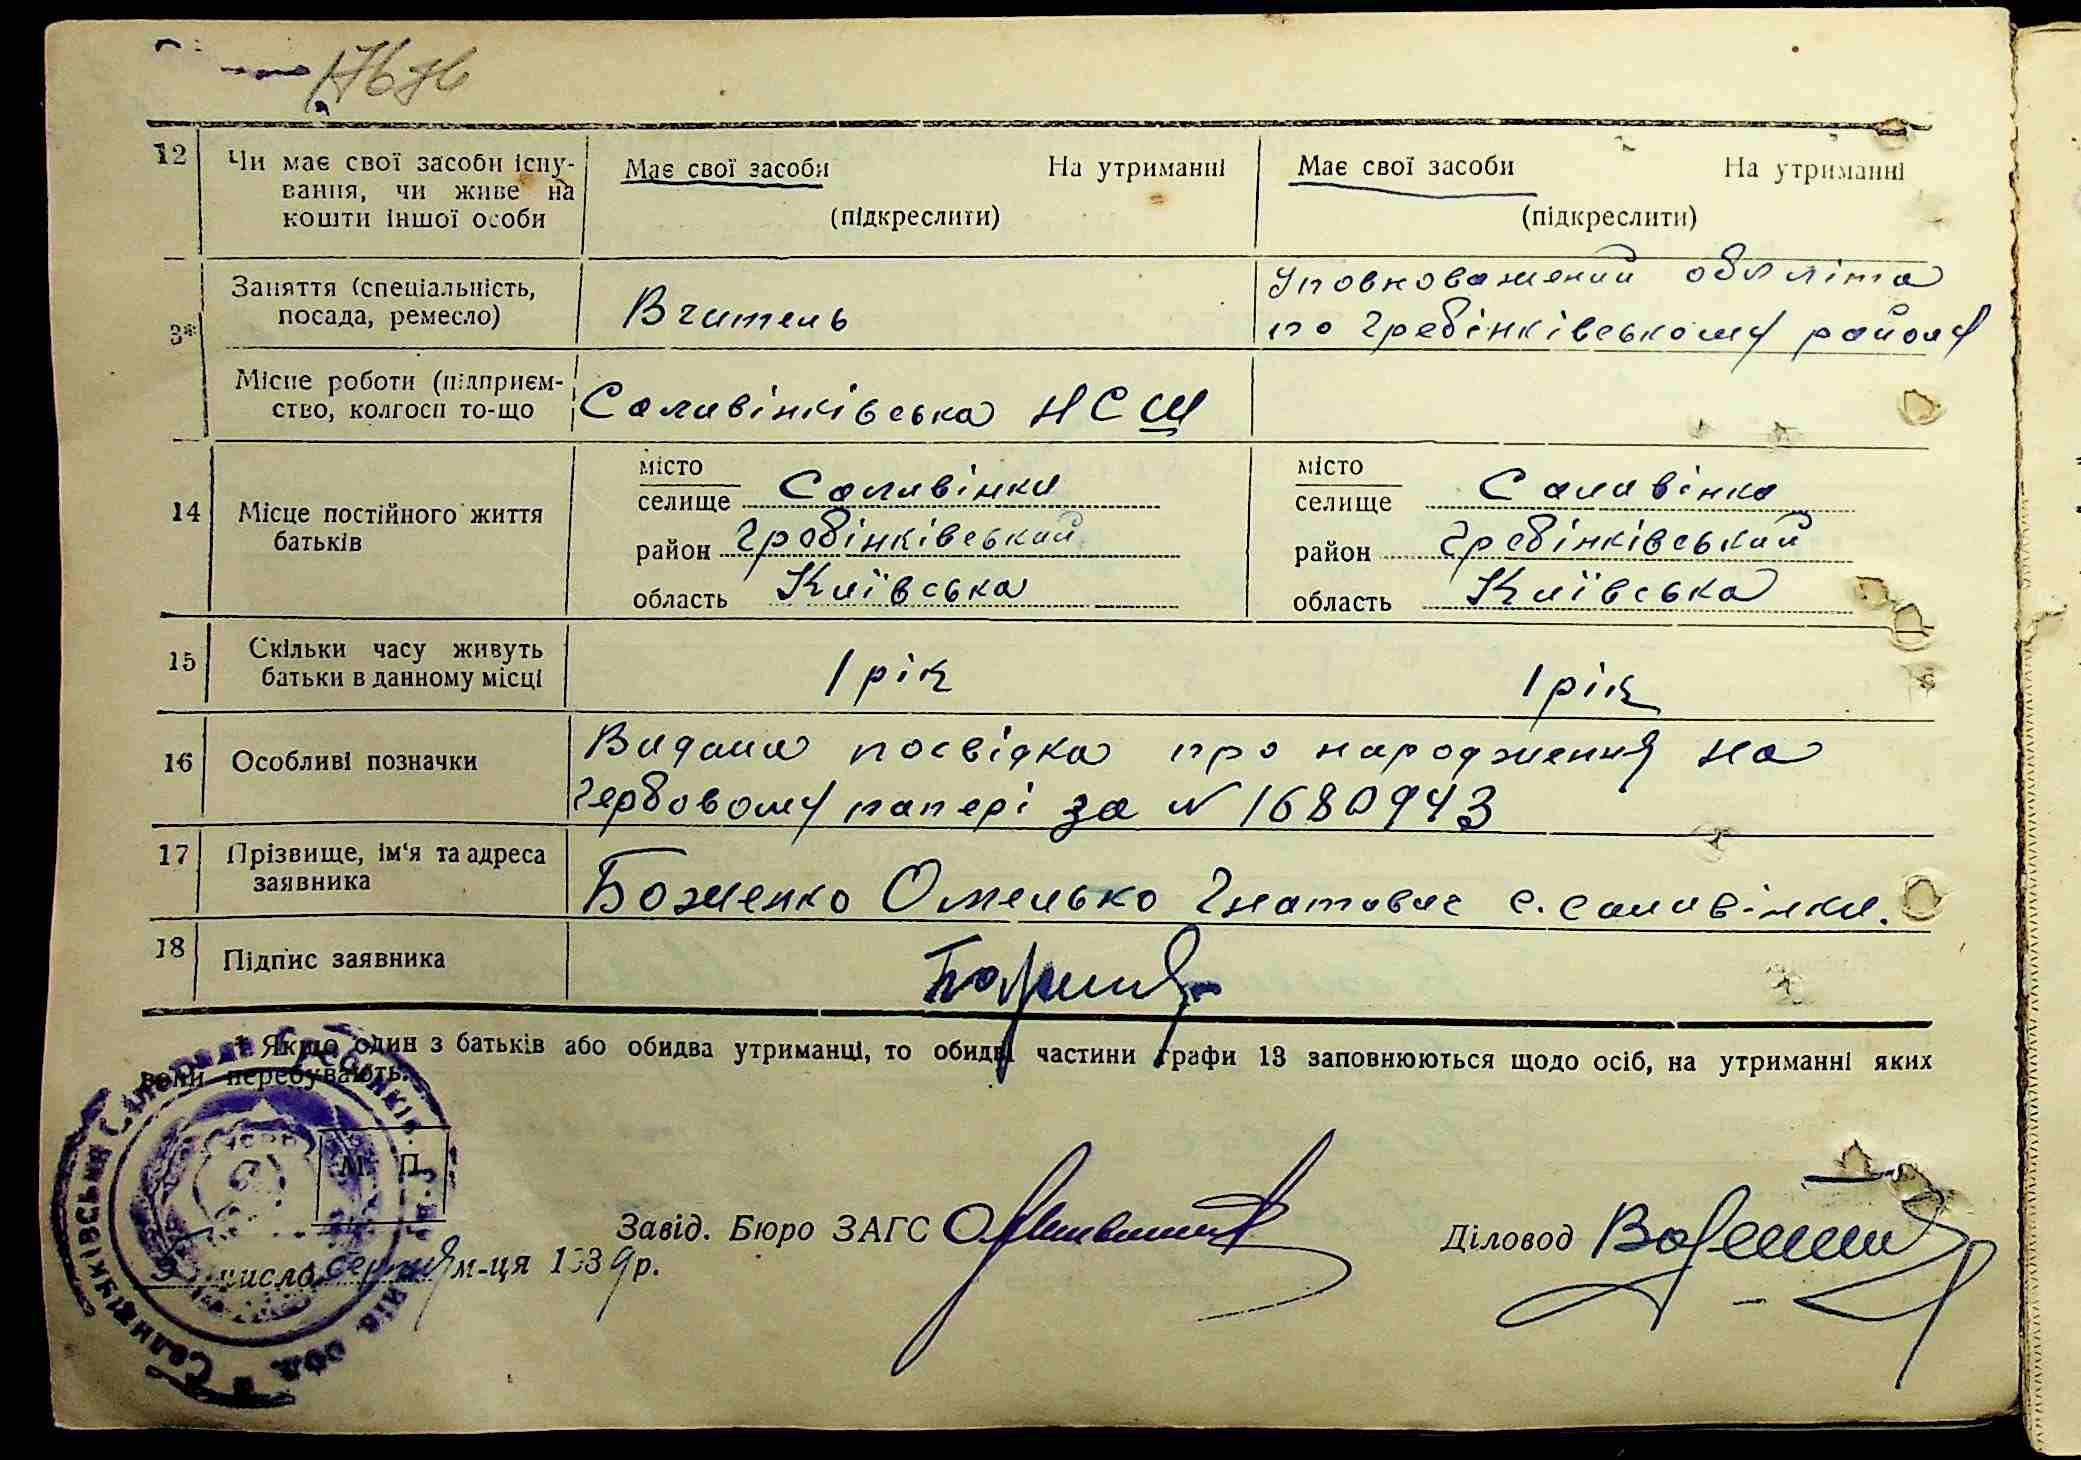 12 Чи має свої засоби існу-
вання, чи живе на
кошти іншої особи
Має свої засоби На утриманні
(підкреслити)
Має свої засоби На утриманні
(підкреслити)
Заняття (спеціальність,
посада, ремесло)
Вчитель
Уповноважений обліта
по Гребінківському району
Місце роботи (підприєм-
ство, колгосп то-що
Саливінківська НСШ
14 Місце постійного життя
батьків
місто
селище Саливінки
район Гребінківський
область Київська
місто
селище Саливінка
район Гребінківський
область Київська
15 Скільки часу живуть
батьки в данному місці
1 рік
1 рік
16 Особливі позначки
Видана посвідка про народження на
гербовому папері за N 1680943
17 Прізвище, ім'я та адреса
заявника
Боженко Омелько Гнатович с. Саливінки.
18 Підпис заявника
* Якщо один з батьків або обидва утриманці, то обидві частини графи 13 заповнюються щодо осіб, на утриманні яких
вони перебувають.
М. П.
Завід. Бюро ЗАГС
Діловод
число серпня м-ця 1939 р.